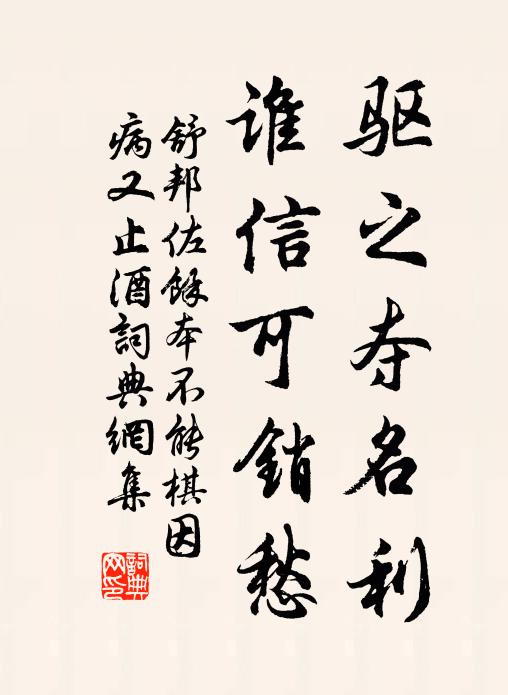 驱之夺名利
谁信可銷愁
舒邦佐餘本不能棋因
病又止酒詞典網集
詞典網印